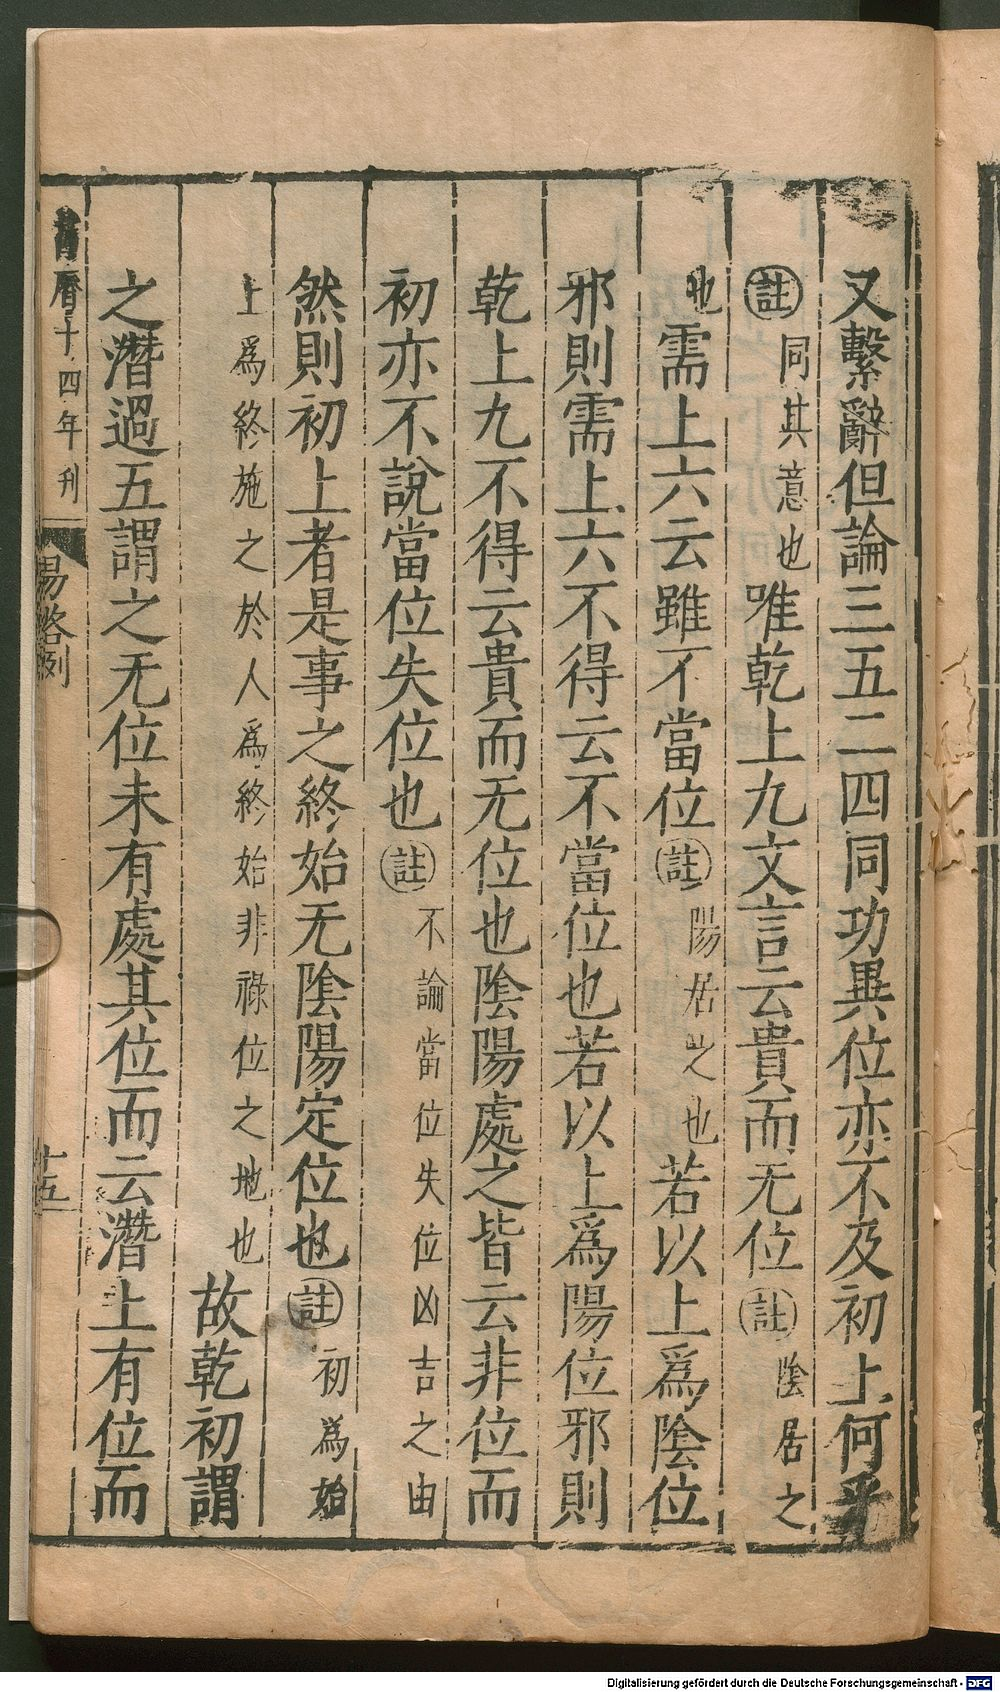 又繫辭但論三五二四同功異位亦不及初上何乎
註同其意也唯乾上九文言云貴而无位註陰居之
也需上六云雖不當位註陽居之也若以上爲陰位
邪則需上六不得云不當位也若以上爲陽位邪則
乾上九不得云貴而无位也陰陽處之皆云非位而
初亦不說當位失位也註不論當位失位凶吉之由
然則初上者是事之終始无陰陽定位也註初爲始
上爲終施之於人爲終始非祿位之地也故乾初謂
之潛過五謂之无位未有處其位而云潛上有位而
曆十四年刋
易略例
十五
Digitalisierung gefördert durch die Deutsche Forschungsgemeinschaft - DFG